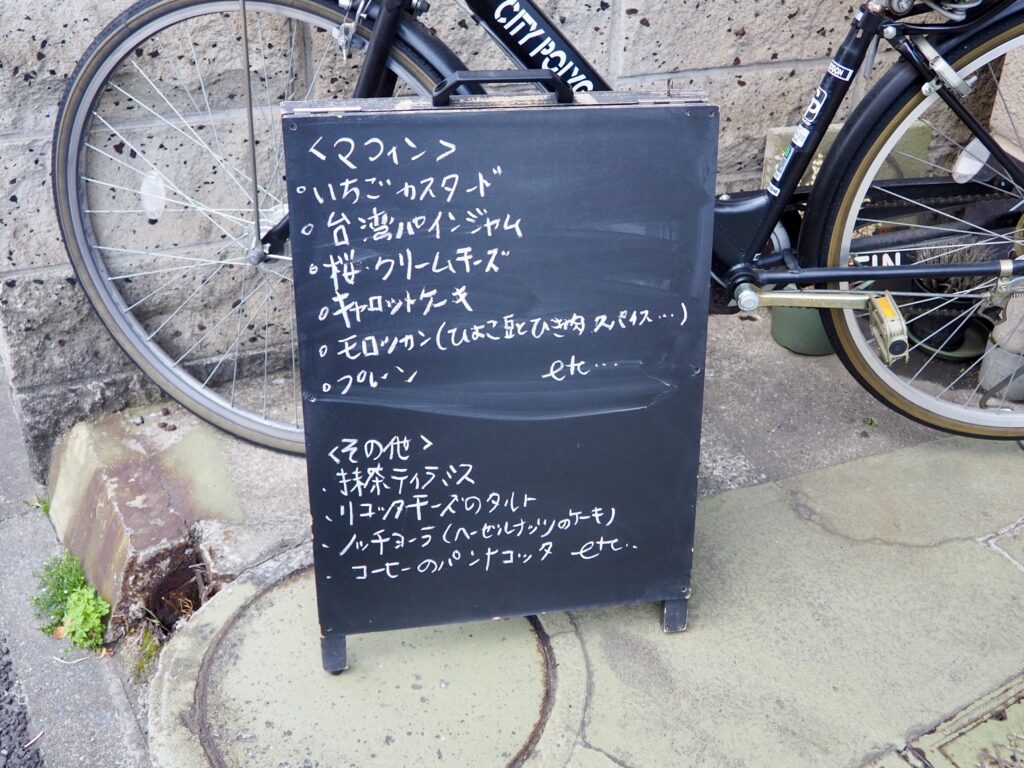 CITY POLYG
<マフィン>
いちごカスタード
台湾パインジャム
桜・クリームチーズ
キャロットケーキ
モロッカン(ひよこ豆とひき肉 スパイス…)
プレーン etc…
<その他>
抹茶ティラミス
リコッタチーズのタルト
ノッチョーラ(ヘーゼルナッツのケーキ)
コーヒーのパンナコッタ etc…